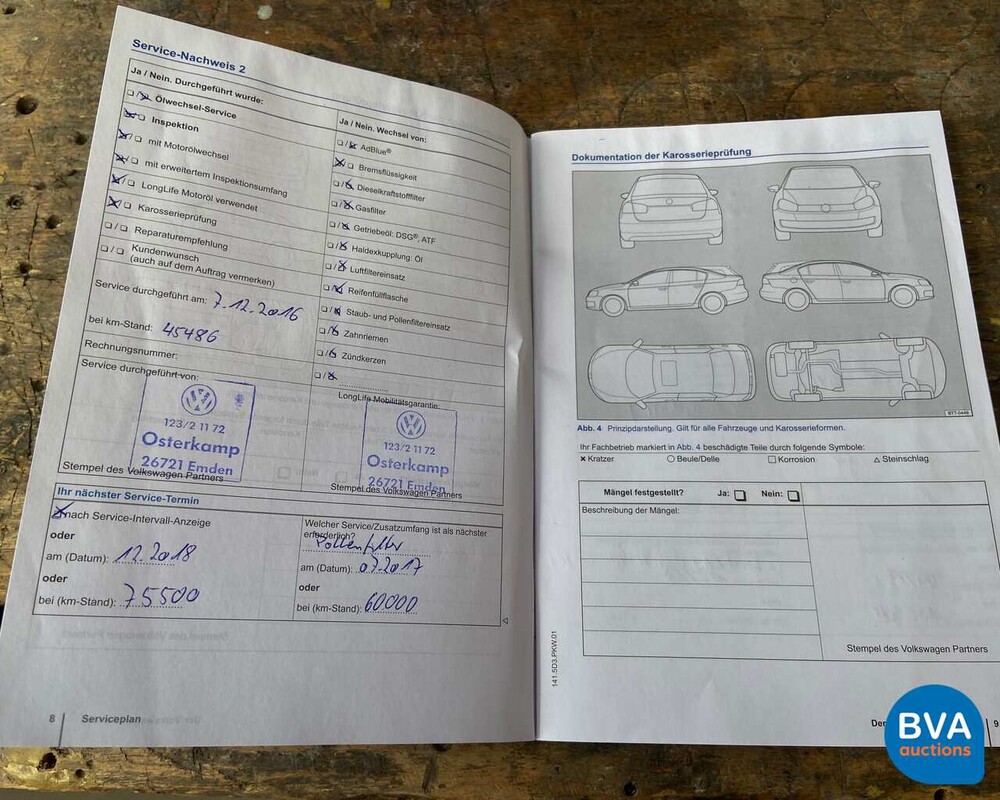 Service-Nachweis 2
Ja / Nein. Durchgeführt wurde:
Ölwechsel-Service
Inspektion
mit Motorölwechsel
mit erweitertem Inspektionsumfang
LongLife Motoröl verwendet
Karosserieprüfung
Reparaturempfehlung
Kundenwunsch
(auch auf dem Auftrag vermerken)
Service durchgeführt am: 7.12.2016
bei km-Stand: 45486
Rechnungsnummer:
Service durchgeführt von:
123/2 11 72
Osterkamp
26721 Emden
Stempel des Volkswagen Partners
Ja / Nein. Wechsel von:
AdBlue®
Bremsflüssigkeit
Dieselkraftstofffilter
Gasfilter
Getriebeöl: DSG®, ATF
Haldexkupplung: Öl
Luftfiltereinsatz
Reifenfüllflasche
Staub- und Pollenfiltereinsatz
Zahnriemen
Zündkerzen
LongLife Mobilitätsgarantie:
123/2 11 72
Osterkamp
26721 Emden
Stempel des Volkswagen Partners
Ihr nächster Service-Termin
nach Service-Intervall-Anzeige
oder
am (Datum): 12.2018
oder
bei (km-Stand): 75500
Welcher Service/Zusatzumfang ist als nächster
erforderlich?
Pollenfilter
am (Datum): 07.2017
oder
bei (km-Stand): 60000
8 Serviceplan
Dokumentation der Karosserieprüfung
BTT-0449
Abb. 4 Prinzipdarstellung. Gilt für alle Fahrzeuge und Karosserieformen.
Ihr Fachbetrieb markiert in Abb. 4 beschädigte Teile durch folgende Symbole:
× Kratzer ○ Beule/Delle □ Korrosion △ Steinschlag
Mängel festgestellt? Ja: Nein:
Beschreibung der Mängel:
Stempel des Volkswagen Partners
141.5D3.PKW.01
9
BVA
auctions